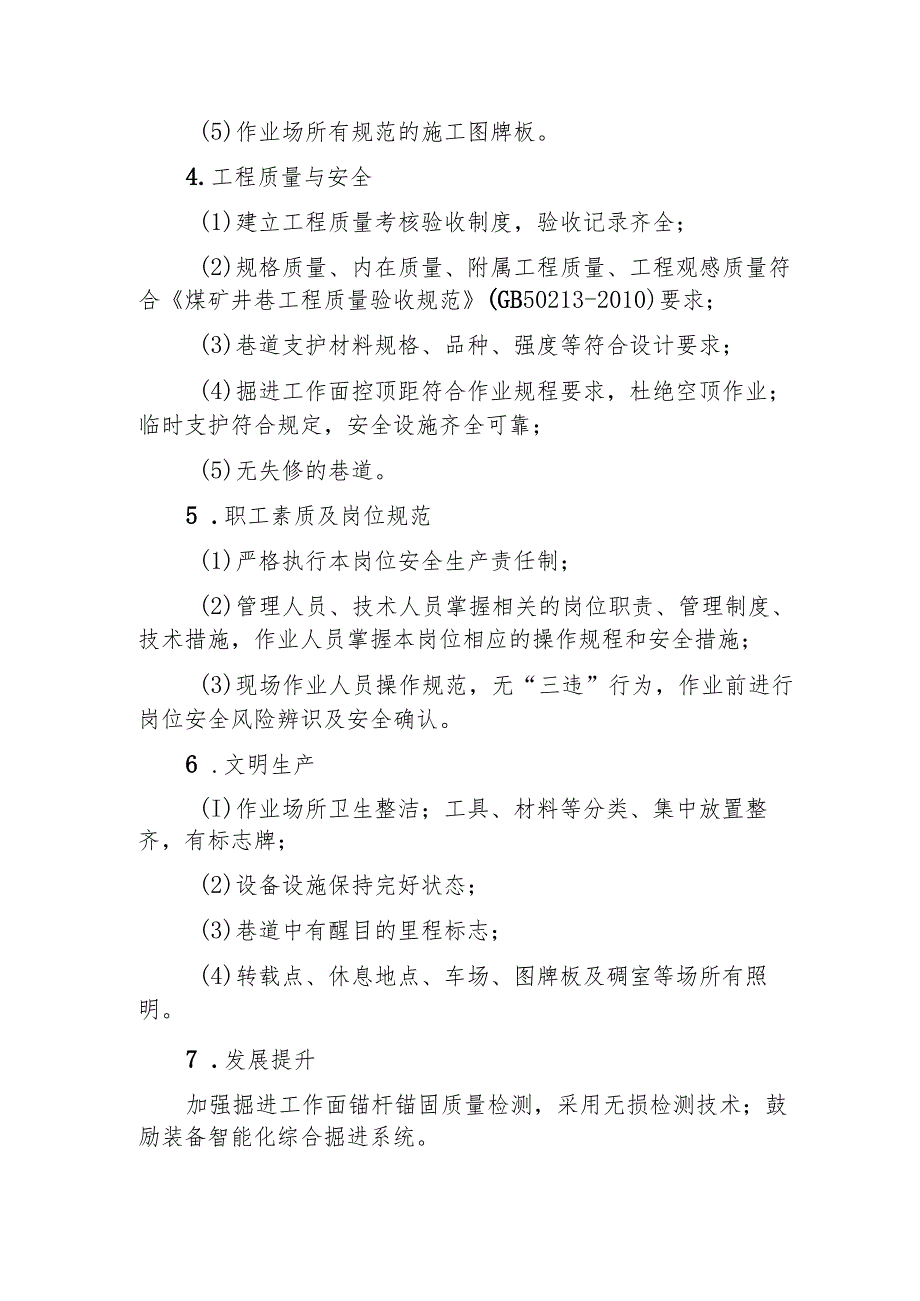 (5)作业场所有规范的施工图牌板。
4.工程质量与安全
(1)建立工程质量考核验收制度，验收记录齐全；
(2)规格质量、内在质量、附属工程质量、工程观感质量符
合《煤矿井巷工程质量验收规范》(GB50213-2010)要求；
(3)巷道支护材料规格、品种、强度等符合设计要求；
(4)掘进工作面控顶距符合作业规程要求，杜绝空顶作业；
临时支护符合规定，安全设施齐全可靠；
(5)无失修的巷道。
5 .职工素质及岗位规范
(1)严格执行本岗位安全生产责任制；
(2)管理人员、技术人员掌握相关的岗位职责、管理制度、
技术措施，作业人员掌握本岗位相应的操作规程和安全措施；
(3)现场作业人员操作规范，无“三违”行为，作业前进行
岗位安全风险辨识及安全确认。
6 .文明生产
(I)作业场所卫生整洁；工具、材料等分类、集中放置整
齐，有标志牌；
(2)设备设施保持完好状态；
(3)巷道中有醒目的里程标志；
(4)转载点、休息地点、车场、图牌板及碉室等场所有照
明。
7 .发展提升
加强掘进工作面锚杆锚固质量检测，采用无损检测技术；鼓
励装备智能化综合掘进系统。